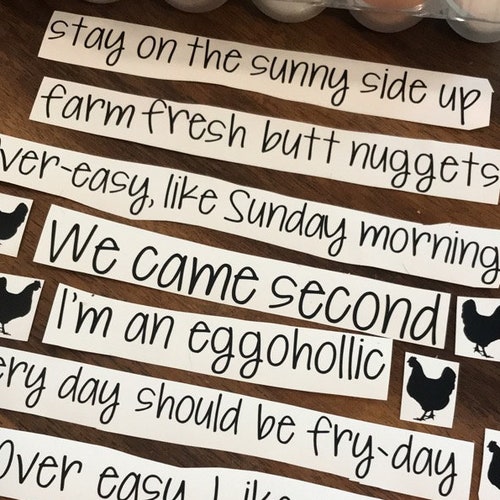 stay on the sunny side up
farm fresh butt nuggets
ver-easy, like Sunday morning
We came second
I'm an eggohollic
ery day should be fry-day
Over easy, Like